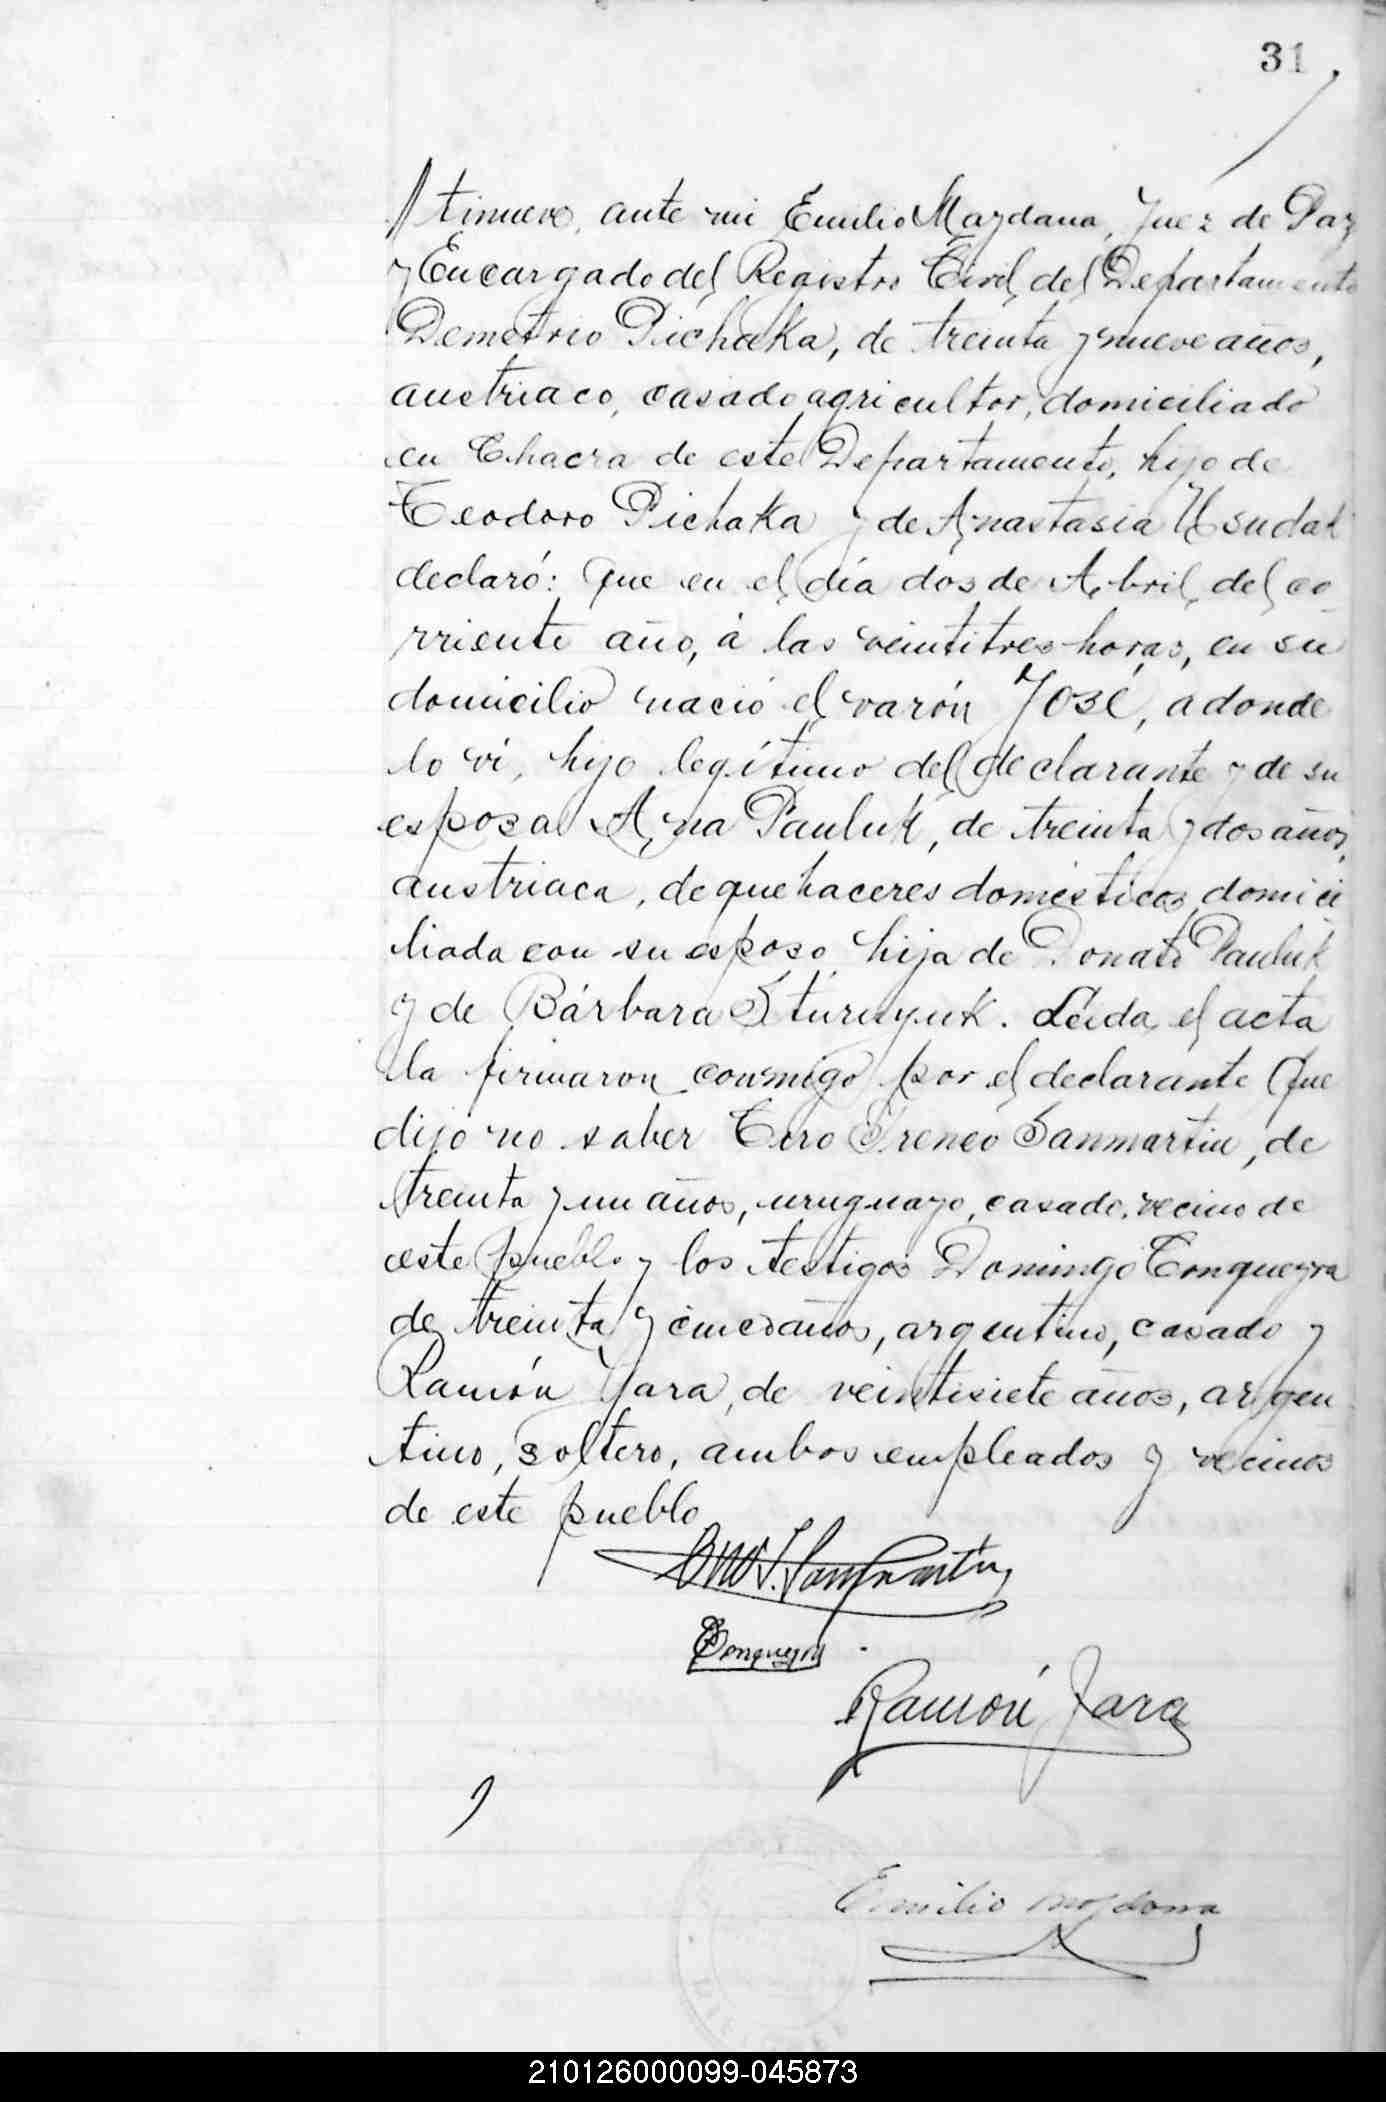 31
tinueve, ante mi Emilio Maydana, Juez de Paz
y Encargado del Registro Civil del Departamento
Demetrio Pichaka, de treinta y nueve años,
austriaco, casado agricultor, domiciliado
en Chacra de este Departamento, hijo de
Teodoro Pichaka y de Anastasia
declaró: Que en el día dos de Abril del co-
rriente año, á las veintitres horas, en su
domicilio nació el varón José, a donde
lo ví, hijo legítimo del declarante y de su
esposa Ana Pauluk, de treinta y dos años,
austriaca, de quehaceres domésticos, domici
liada con su esposo, hija de Donato Pauluk
y de Bárbara. Leida el acta
la firmaron conmigo por el declarante Que
dijo no saber Ciro Ireneo Sanmartin, de
treinta y un años, uruguayo, casado, vecino de
este pueblo y los testigos Domingo Conqueyra
de treinta y cinco años, argentino, casado y
Ramón Jara, de veintisiete años, argen
tino, soltero, ambos empleados y vecinos
de este pueblo
Ramón Jara
Emilio Maydana
210126000099-045873